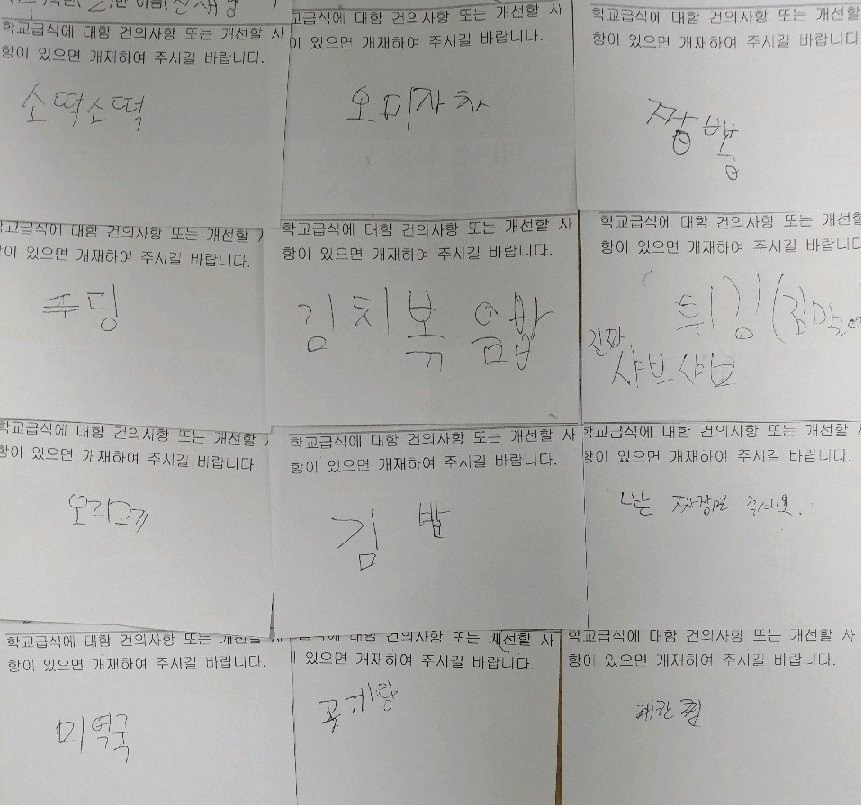 학교급식에 대함 건의사항 또는 개선할 사
항이 있으면 개재하여 주시길 바랍니다.
소떡소떡
교급식에 대함 건의사항 또는 개선할 사
이 있으면 개재하여 주시길 바랍니다.
오미자차
학교급식에 대함 건의사항 또는 개선할
항이 있으면 개재하여 주시길 바랍니다
짬뽕
학교급식에 대함 건의사항 또는 개선할
항이 있으면 개재하여 주시길 바랍니다.
푸딩
학교급식에 대함 건의사항 또는 개선할 사
항이 있으면 개재하여 주시길 바랍니다.
김치볶음밥
학교급식에 대함 건의사항 또는 개선할
항이 있으면 개재하여 주시길 바랍니다
튀김(김말이
샤브샤브
학교급식에 대함 건의사항 또는 개선할
항이 있으면 개재하여 주시길 바랍니다
오리고기
학교급식에 대함 건의사항 또는 개선할 사
항이 있으면 개재하여 주시길 바랍니다.
김밥
학교급식에 대함 건의사항 또는 개선할
항이 있으면 개재하여 주시길 바랍니다.
짜장면 주세요.
학교급식에 대함 건의사항 또는 개선할
항이 있으면 개재하여 주시길 바랍니다.
미역국
대함 건의사항 또는 개선할 사
있으면 개재하여 주시길 바랍니다.
꽃게탕
학교급식에 대함 건의사항 또는 개선할 사
항이 있으면 개재하여 주시길 바랍니다.
계란찜